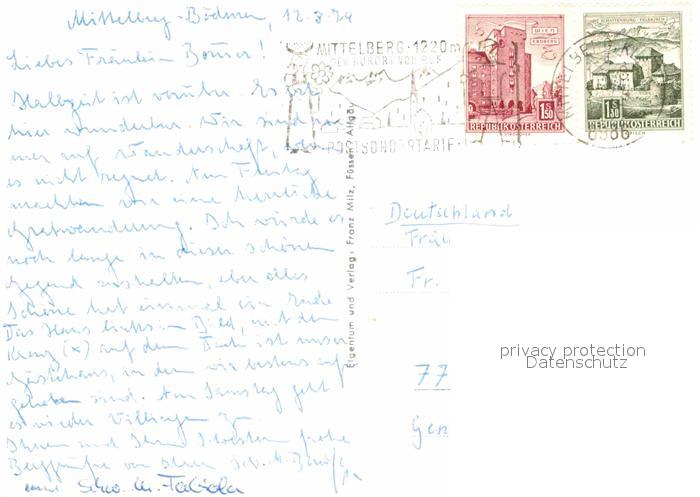 Mittelberg-Bödmen, 12.8.74
Liebes Fräulein
Halbzeit ist vorüber. Es ist
hier wunderbar. Wir sind
mer auf Wanderschaft,
es nicht regnet. Am Freitag
machten wir eine herrliche
Gratwanderung. Ich würde es
noch lange in dieser schönen
Gegend aushalten, aber alles
Schöne hat einmal ein Ende
Das Haus links im Bild, mit dem
Kreuz (x) auf dem Dach ist unser
Gästehaus, in dem wir bestens auf-
gehoben sind. Am Samstag geht
es wieder Villingen zu.
Ihnen und Ihrer Schwester frohe
Berggrüße von Ihrer Schw. M.
und Schw. M. Fabiola
MITTELBERG · 1220 m
DER KURORT VON RUF
POSTSONDERTARIF
WIEN
ERDBERG
1.50
REPUBLIK ÖSTERREICH
SCHATTENBURG - FELDKIRCH
1.50
REPUBLIK ÖSTERREICH
Eigentum und Verlag: Franz Milz, Füssen / Allgäu
Deutschland
Fräu
Fr.
77
Gen
privacy protection
Datenschutz